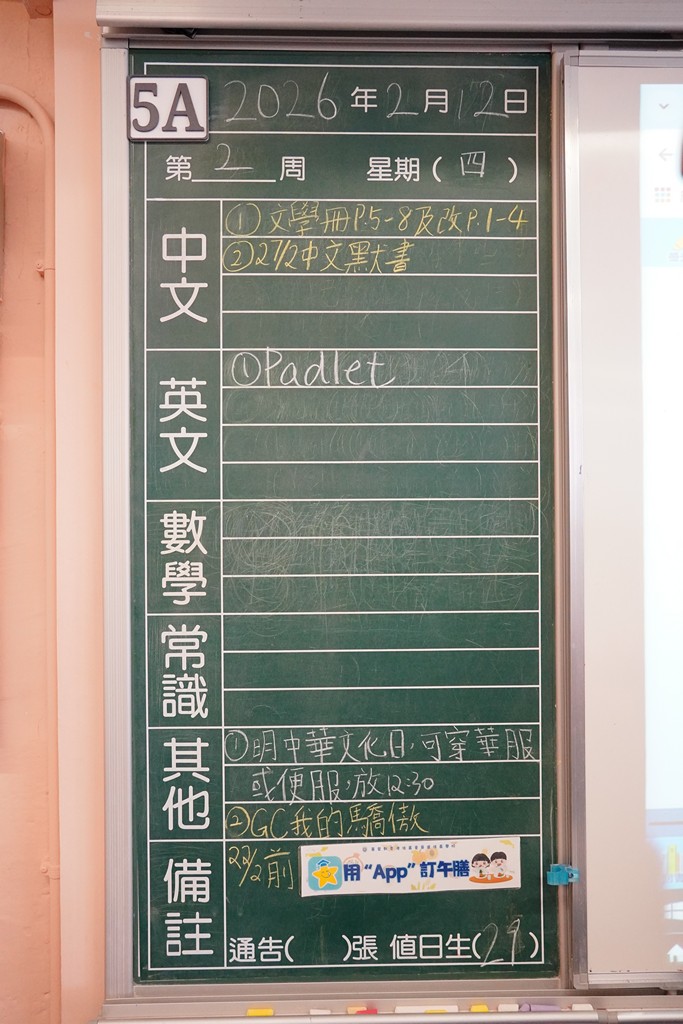 5A 2026年2月12日
第2周 星期(四)
中文
①文學冊P.5-8及改P.1-4
②27/2中文默書
英文
①Padlet
數學
常識
其他
①明中華文化日,可穿華服
或便服,放12:30
②GC我的驕傲
備註
22/2前
用“App”訂午膳
通告( )張 值日生(29)